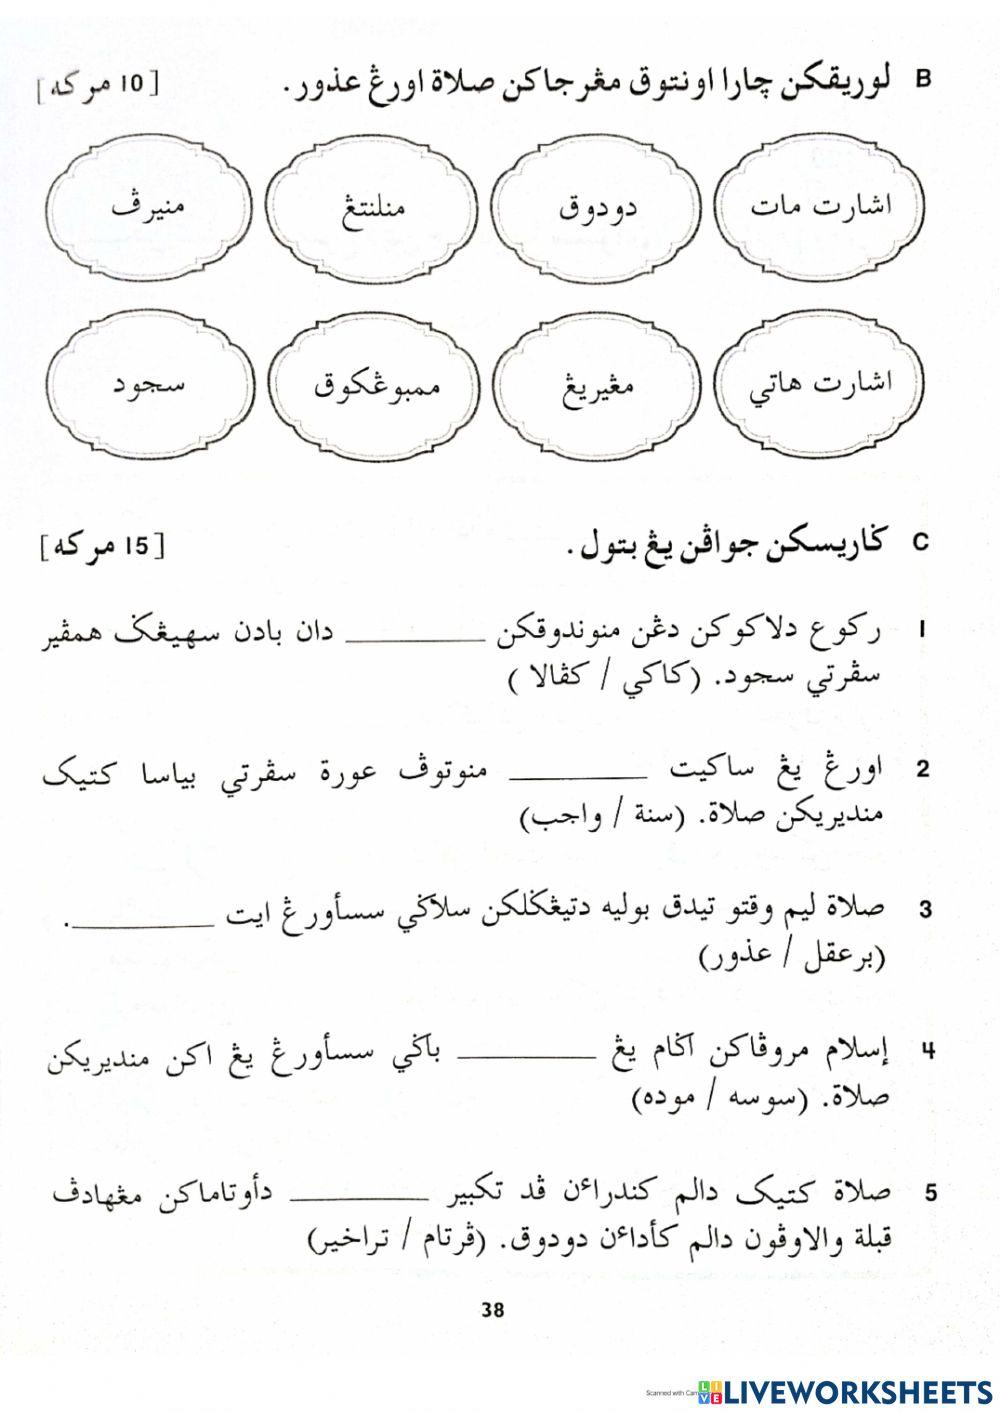 B لوريقكن چارا اونتوق مڠرجاکن صلاة اورڠ عذور. [10 مرکه]
اشارت مات
دودوق
منلنتڠ
منيرڤ
اشارت هاتي
مڠيريڠ
ممبوڠکوق
سجود
C ݢاريسکن جواڤن يڠ بتول. [15 مرکه]
1 رکوع دلاکوکن دڠن منوندوقکن __________ دان بادن سهيڠݢ همڤير
سڤرتي سجود. (کاکي / کڤالا )
2 اورڠ يڠ ساکيت __________ منوتوڤ عورة سڤرتي بياسا کتيک
منديريکن صلاة. (سنة / واجب)
3 صلاة ليم وقتو تيدق بوليه دتيڠݢلکن سلاݢي سسأورڠ ايت __________.
(برعقل / عذور)
4 إسلام مروڤاکن اݢام يڠ __________ باݢي سسأورڠ يڠ اکن منديريکن
صلاة. (سوسه / موده)
5 صلاة کتيک دالم کندراءن ڤد تکبير __________ دأوتاماکن مڠهادڤ
قبلة والاوڤون دالم کأداءن دودوق. (ڤرتام / تراخير)
38
Scanned with Cam
LIVEWORKSHEETS